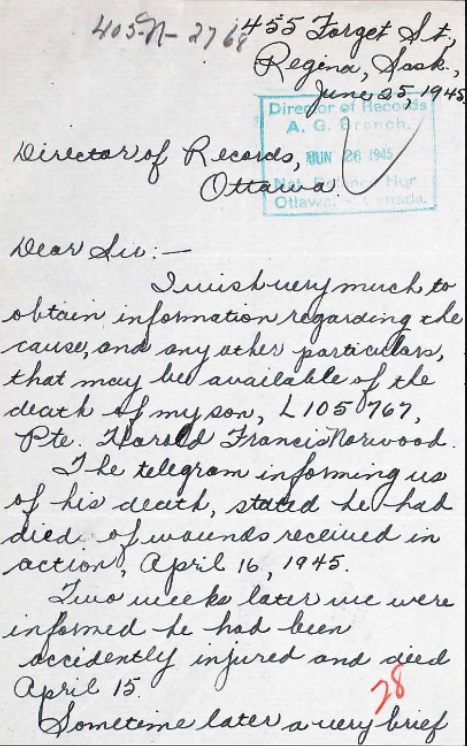 405-N-2768
455 Forget St.,
Regina, Sask.,
June 25, 1945
Director of Records
A. G. Branch.
JUN 26 1945
Nat. Defence Hqr
Ottawa. - Canada.
Director of Records,
Ottawa.
Dear Sir:-
I wish very much to
obtain information regarding the
cause, and any other particulars,
that may be available of the
death of my son, L105767,
Pte. Harold Francis Norwood.
The telegram informing us
of his death, stated he had
died of wounds received in
action, April 16, 1945.
Two weeks later we were
informed he had been
accidently injured and died
April 15.
28
Sometime later a very brief